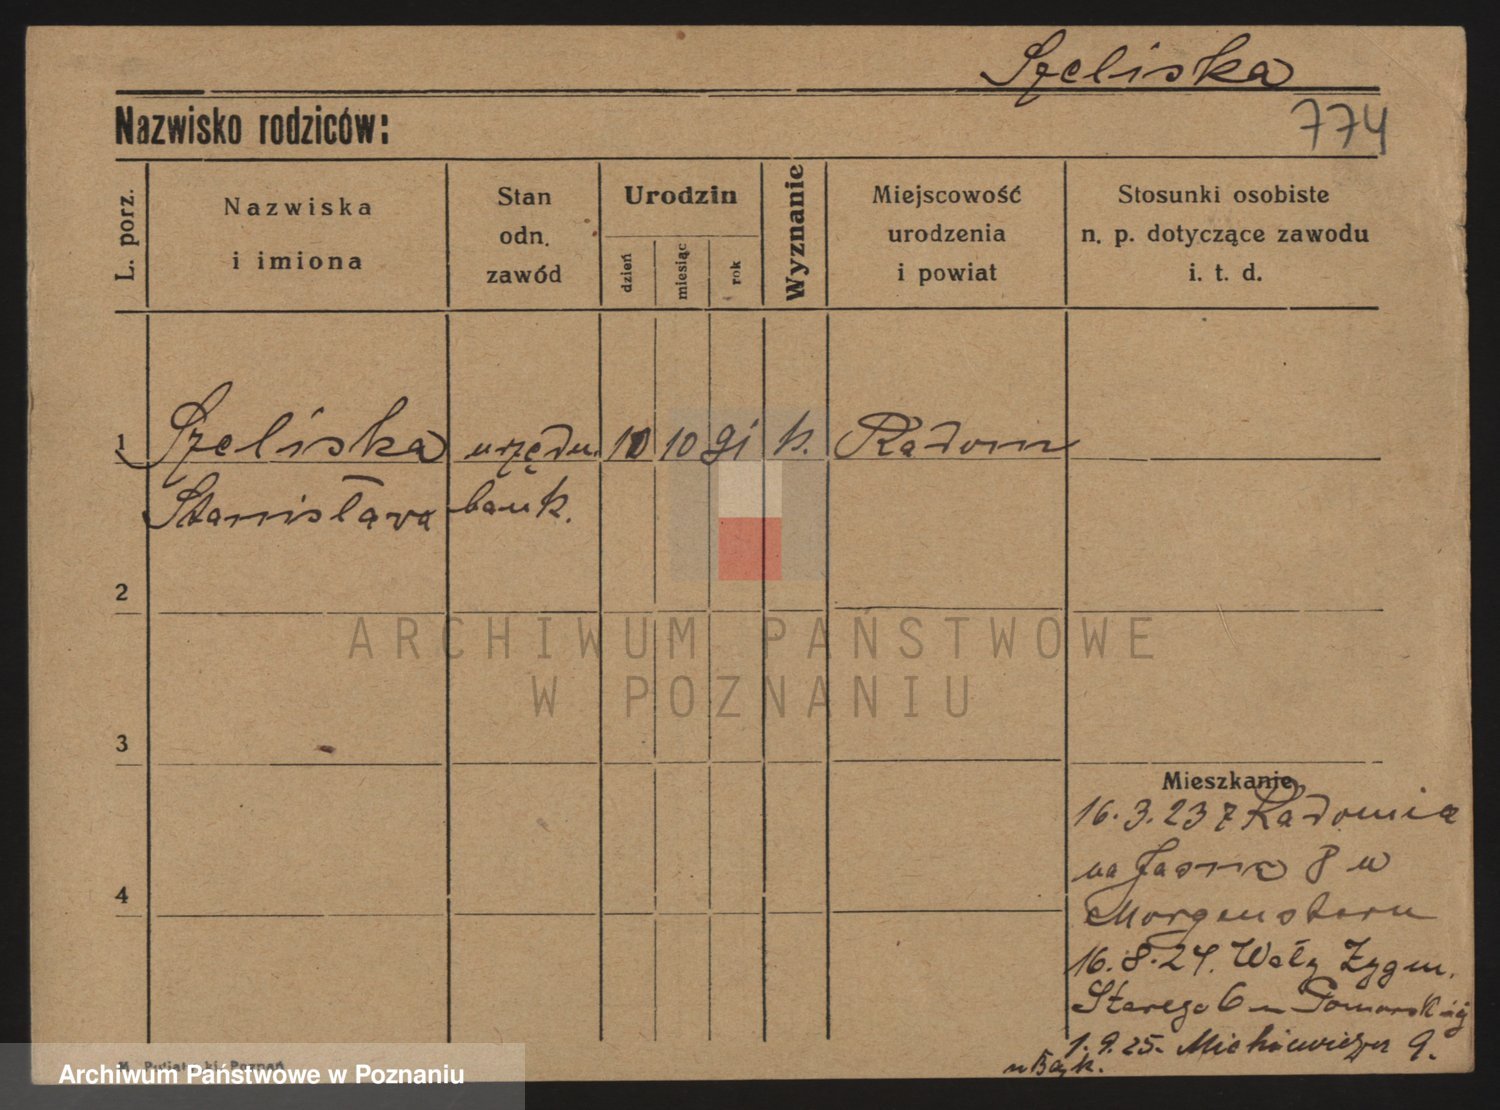 Szeliska
774
Nazwisko rodziców:
L. porz.
Nazwiska
i imiona
Stan
odn.
zawód
Urodzin
dzień
miesiąc
rok
Wyznanie
Miejscowość
urodzenia
i powiat
Stosunki osobiste
n. p. dotyczące zawodu
i. t. d.
1
Szeliska urzędn. 10 10 91 k. Radom
Stanisława bank.
2
ARCHIWUM PAŃSTWOWE
W POZNANIU
3
Mieszkanie
16.3.23 z Radomia
na Jasną 8 u
Morgenstern
4
16.8.24. Wały Zygm.
Starego 6 u Pomorskiej
1.9.25. Mickiewicza 9.
Archiwum Państwowe w Poznaniu